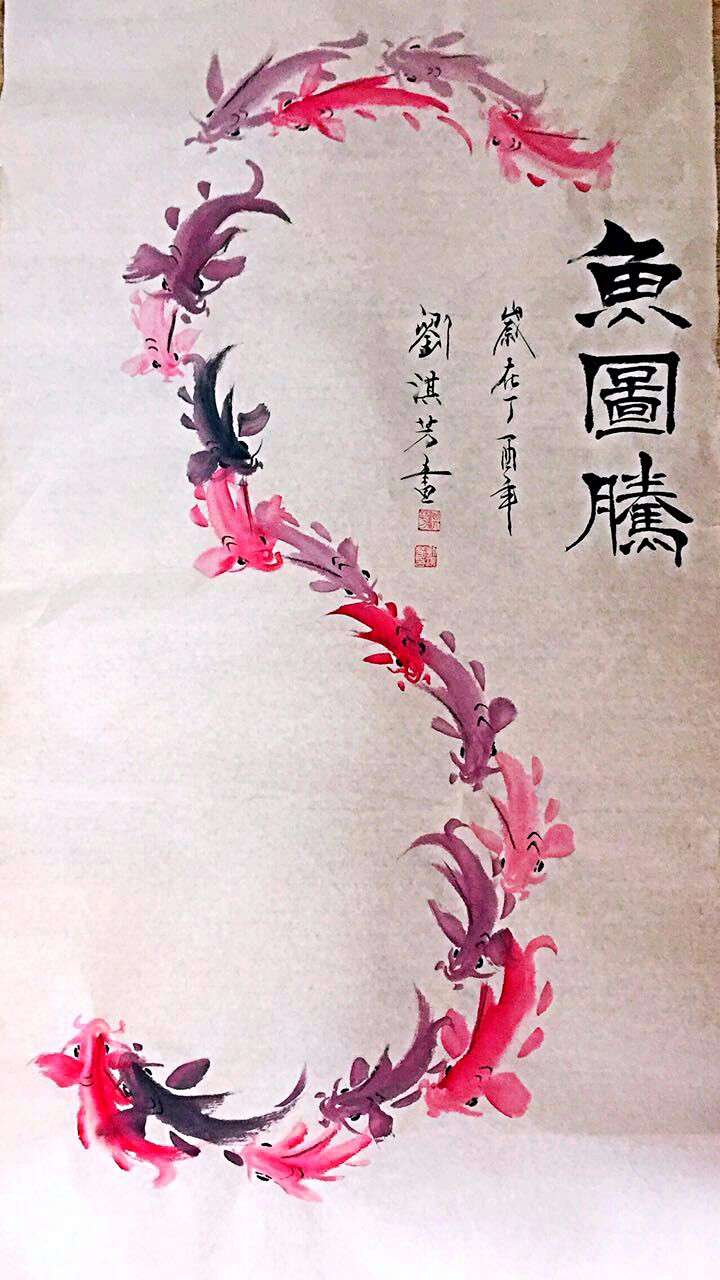 魚圖騰
歲在丁酉年
劉淇芳畫